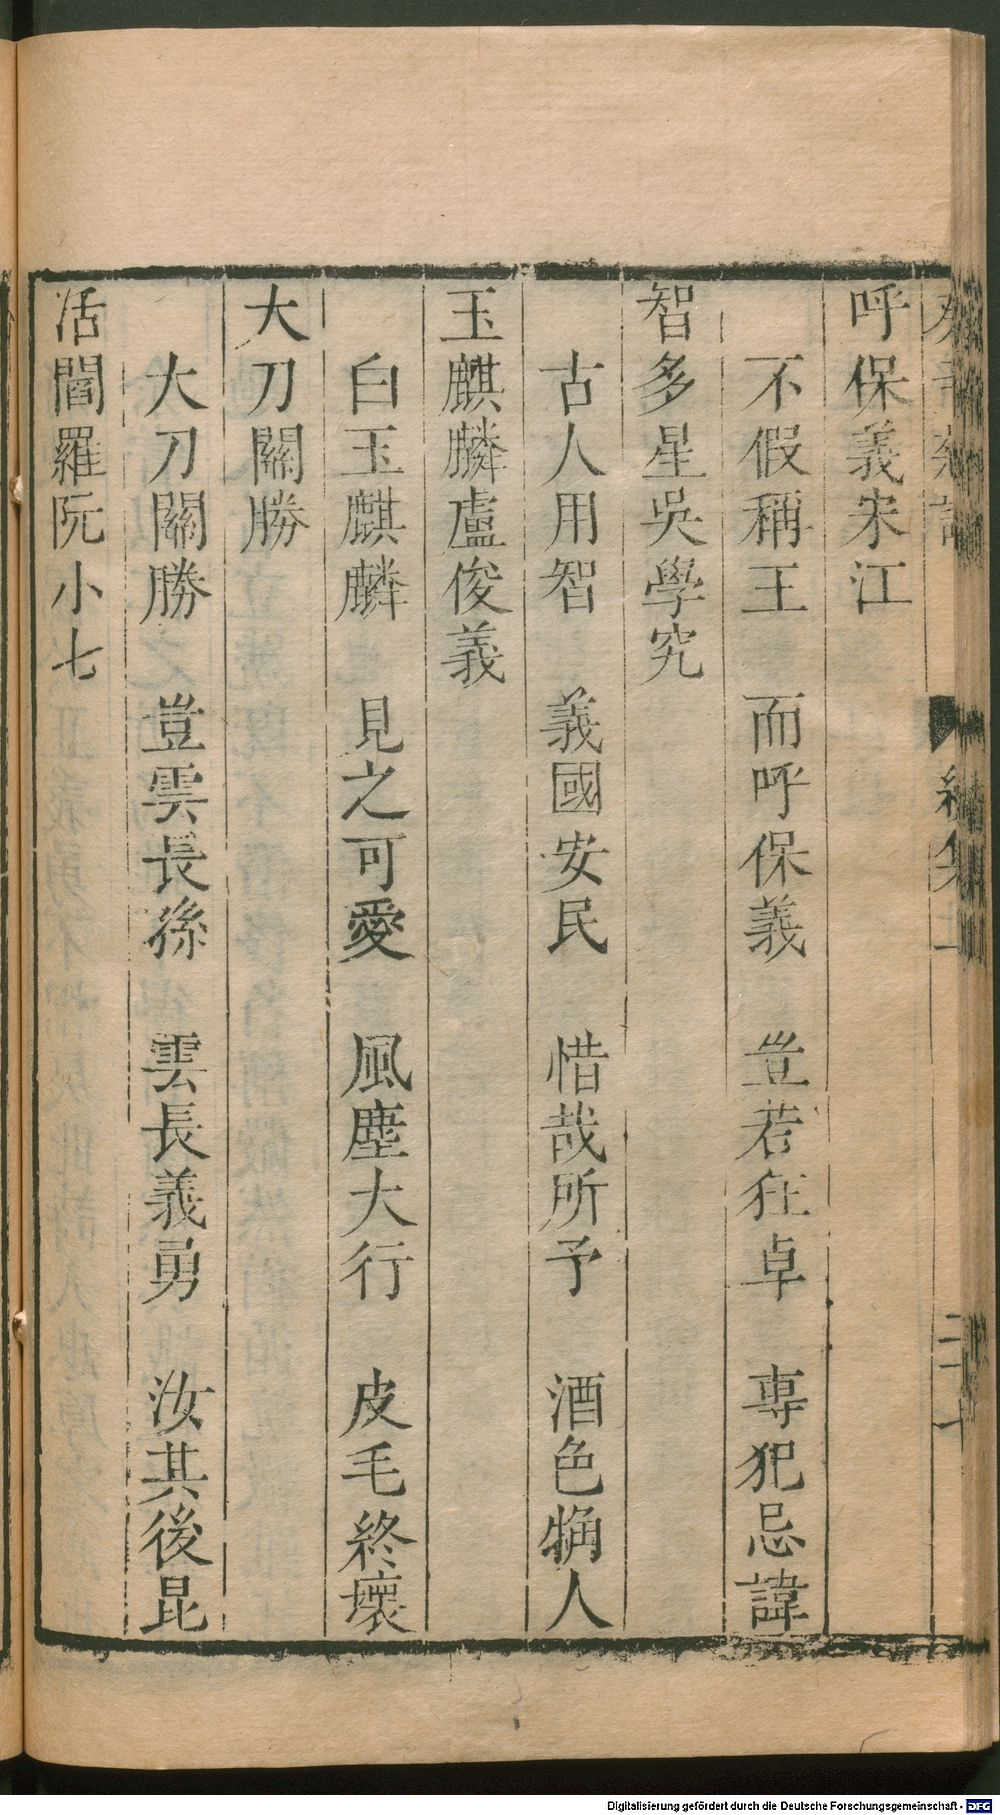 癸辛雜識 續集上 二十七
呼保義宋江
不假稱王 而呼保義 豈若狂卓 専犯忌諱
智多星吳學究
古人用智 義國安民 惜哉所予 酒色觕人
玉麒麟盧俊義
白玉麒麟 見之可愛 風塵大行 皮毛終壞
大刀關勝
大刀關勝 豈雲長孫 雲長義勇 汝其後昆
活閻羅阮小七
Digitalisierung gefördert durch die Deutsche Forschungsgemeinschaft - DFG